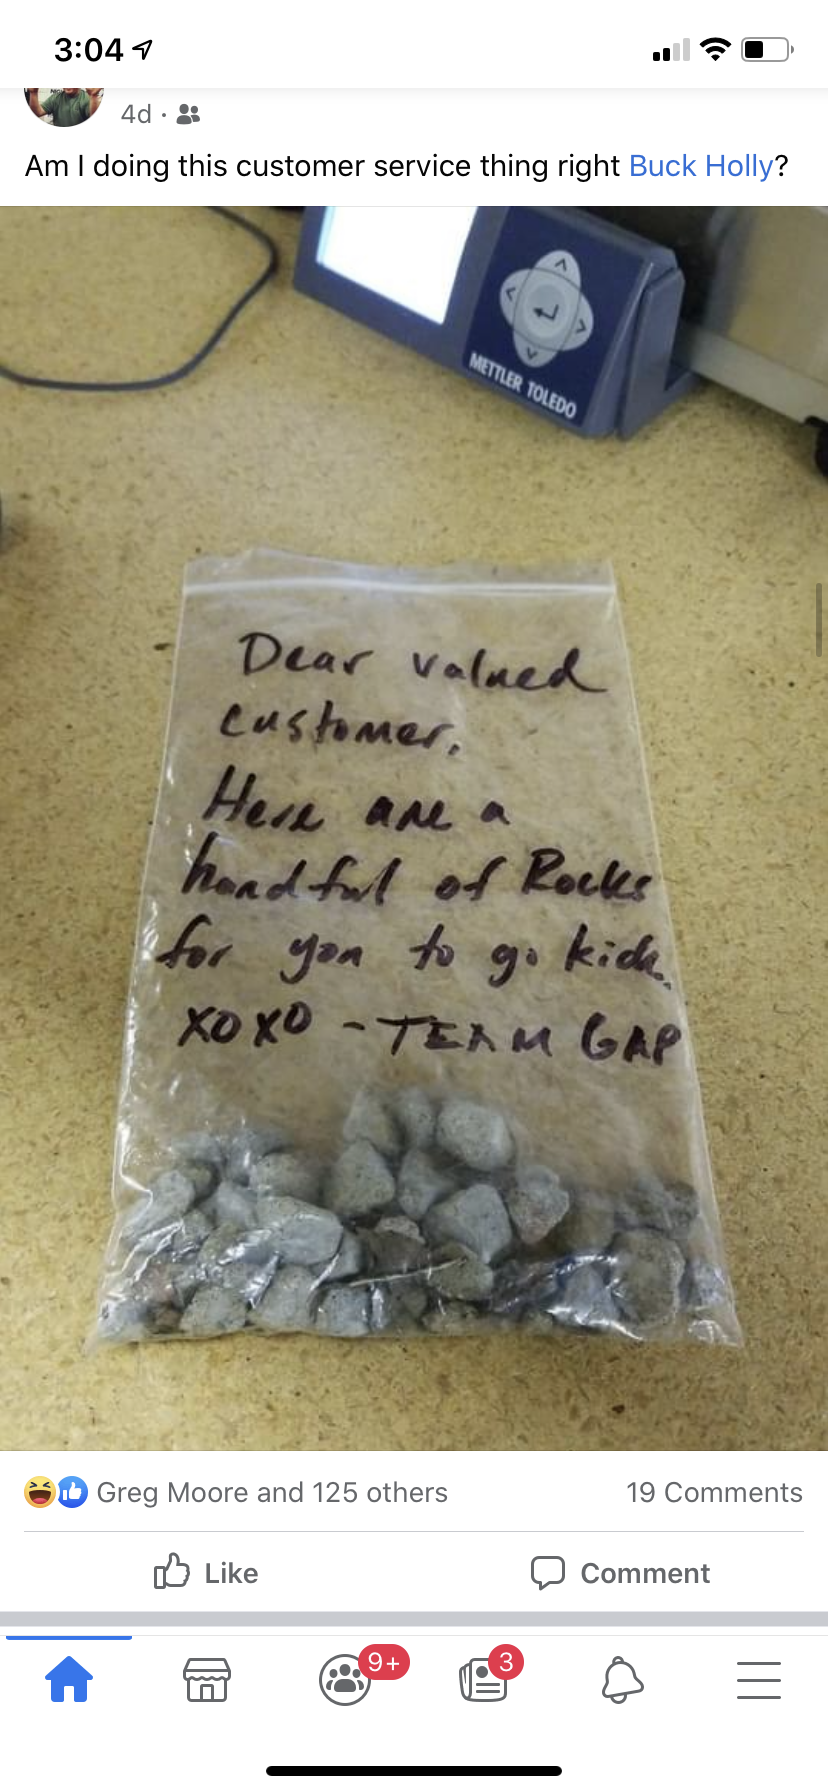 3:04
4d ·
Am I doing this customer service thing right Buck Holly?
METTLER TOLEDO
Dear valued
customer,
Here are a
handful of Rocks
for you to go kick.
XOXO - TEAM GAP
Greg Moore and 125 others
19 Comments
Like
Comment
9+
3